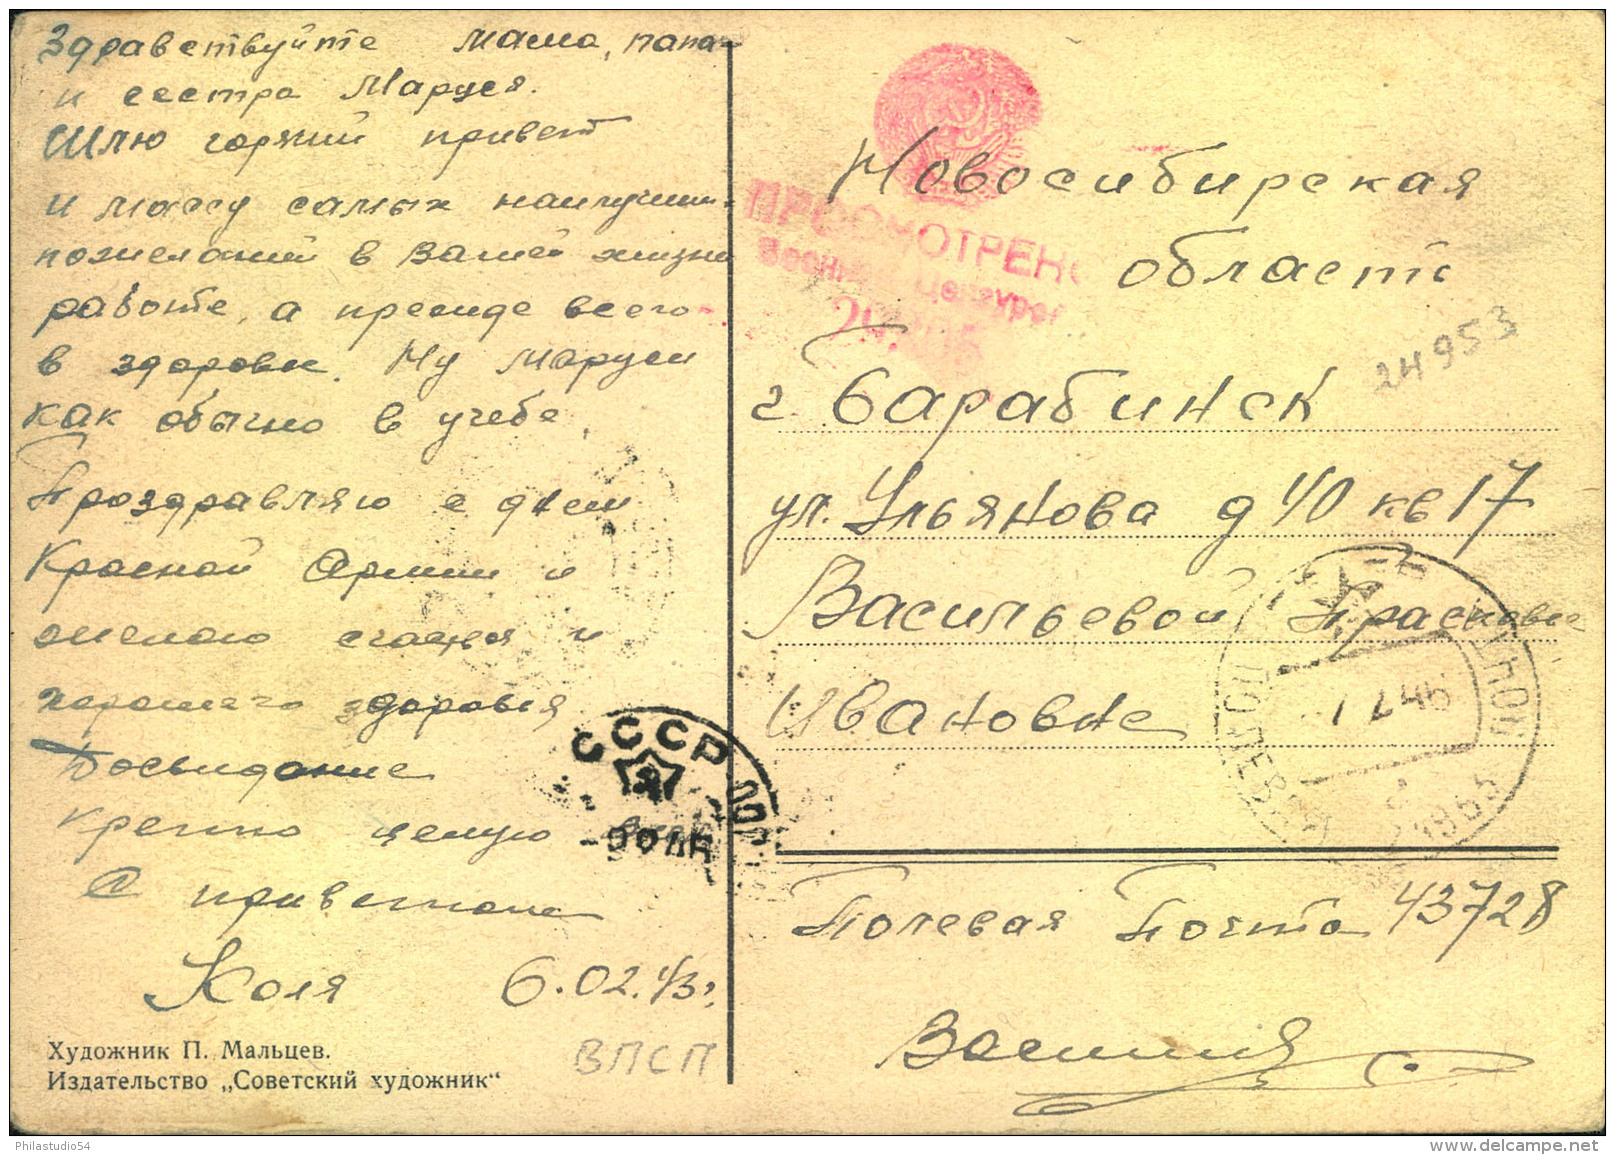 Здравствуйте мама, папа
и сестра Маруся.
Шлю горячий привет
и массу самых наилучших
пожеланий в Вашей жизни
работе, а прежде всего
в здоровье. Ну Маруси
как обычно в учебе,
Проздравляю с днем
Красной Армии и
желаю счастья и
хорошего здоровья
Досвидание
Крепко целую
С приветом
Коля 6.02.43г.
Художник П. Мальцев.
Издательство „Советский художник“
ВПСП
ПРОСМОТРЕНО
Военной Цензурой
Новосибирская
область
24953
г. Барабинск
ул. Ульянова д 40 кв 17
Васильевой Прасковье
Ивановне
СССР
Полевая Почта 43728
Philastudio54
www.delcampe.net